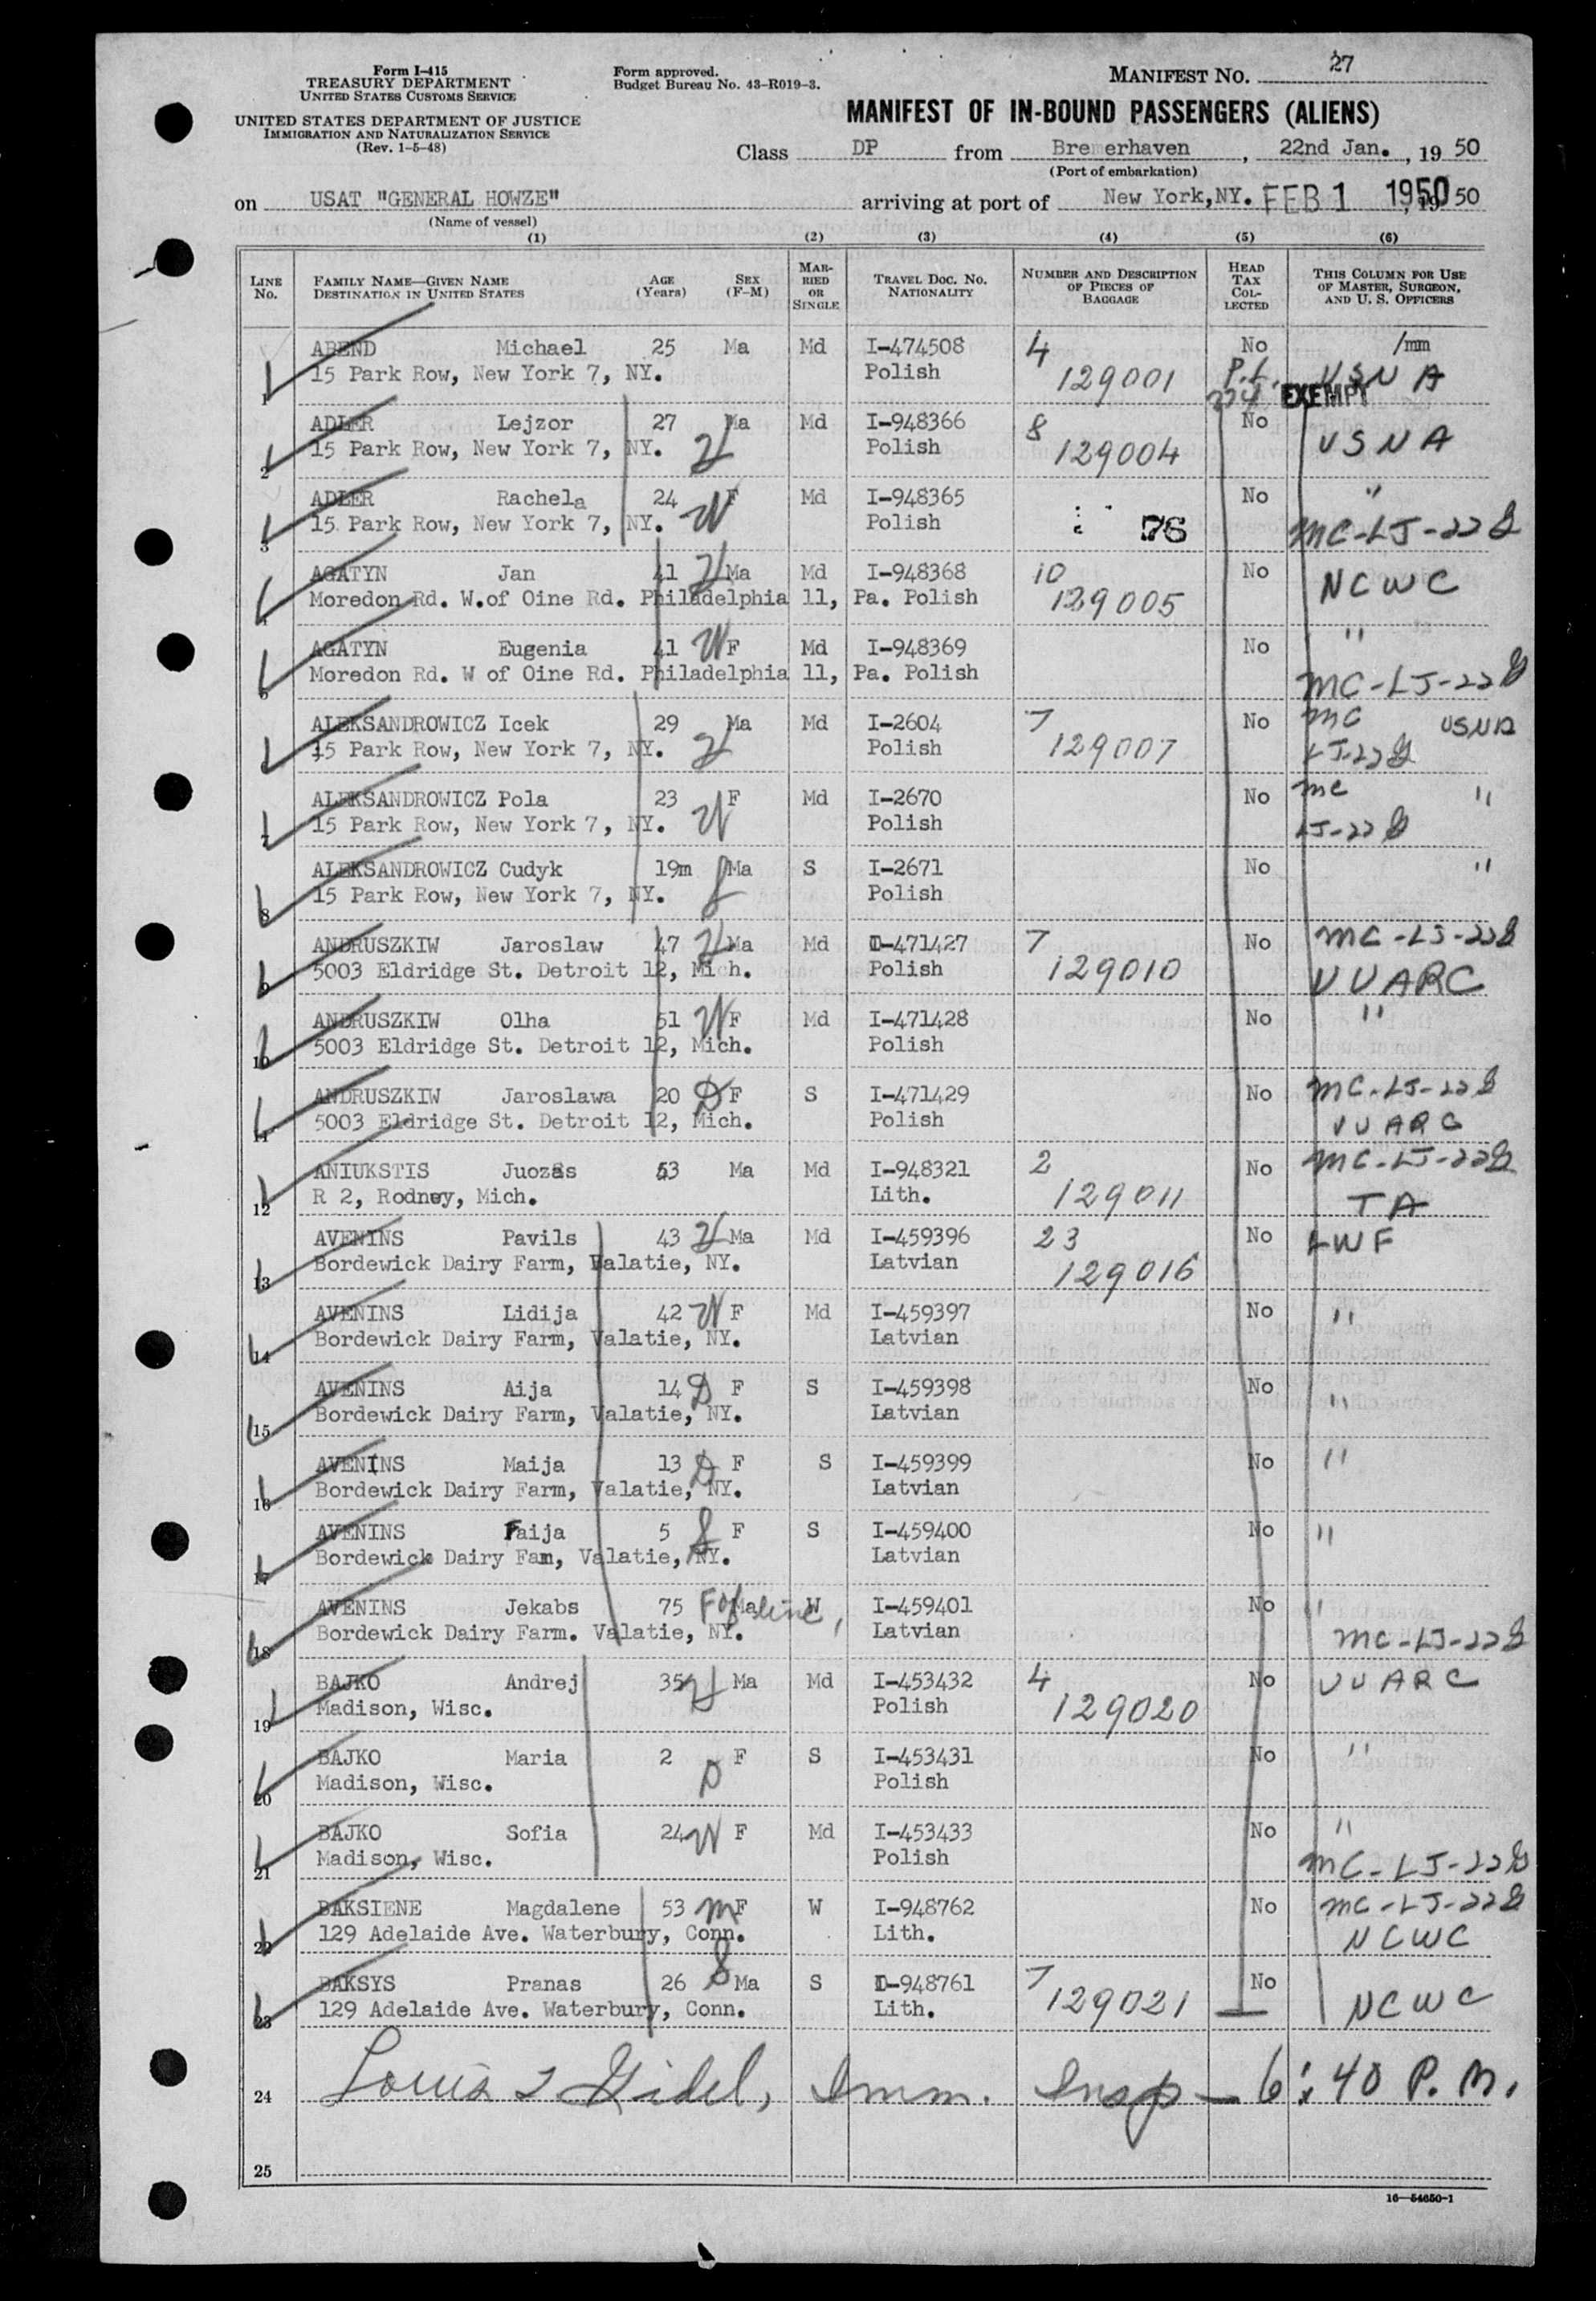 Form I-415
TREASURY DEPARTMENT
UNITED STATES CUSTOMS SERVICE
UNITED STATES DEPARTMENT OF JUSTICE
IMMIGRATION AND NATURALIZATION SERVICE
(Rev. 1-5-48)
Form approved.
Budget Bureau No. 43-R019-3.
MANIFEST NO. 27
MANIFEST OF IN-BOUND PASSENGERS (ALIENS)
Class DP from Bremerhaven, 22nd Jan., 19 50
(Port of embarkation)
on USAT "GENERAL HOWZE" arriving at port of New York,NY. FEB 1 1950, 19 50
(Name of vessel)
(1) (2) (3) (4) (5) (6)
LINE No. FAMILY NAME—GIVEN NAME DESTINATION IN UNITED STATES AGE (Years) SEX (F-M) MARRIED OR SINGLE TRAVEL DOC. NO. NATIONALITY NUMBER AND DESCRIPTION OF PIECES OF BAGGAGE HEAD TAX COLLECTED THIS COLUMN FOR USE OF MASTER, SURGEON, AND U. S. OFFICERS
ABEND Michael 25 Ma Md I-474508 4 No /mm
1 15 Park Row, New York 7, NY. Polish 129001 USNA
EXEMPT
ADLER Lejzor 27 Ma Md I-948366 8 No
2 15 Park Row, New York 7, NY. Polish 129004 USNA
ADLER Rachela 24 F Md I-948365 No "
3 15 Park Row, New York 7, NY. Polish 76 MC-LJ-22
AGATYN Jan 41 Ma Md I-948368 10 No NCWC
4 Moredon Rd. W.of Oine Rd. Philadelphia 11, Pa. Polish 129005
AGATYN Eugenia 41 W F Md I-948369 No "
5 Moredon Rd. W of Oine Rd. Philadelphia 11, Pa. Polish MC-LJ-22
ALEKSANDROWICZ Icek 29 Ma Md I-2604 7 No MC USNA
6 15 Park Row, New York 7, NY. Polish 129007 LJ-22
ALEKSANDROWICZ Pola 23 F Md I-2670 No MC "
7 15 Park Row, New York 7, NY. W Polish LJ-22
ALEKSANDROWICZ Cudyk 19m Ma S I-2671 No "
8 15 Park Row, New York 7, NY. Polish
ANDRUSZKIW Jaroslaw 47 Ma Md I-471427 7 No MC-LJ-22
9 5003 Eldridge St. Detroit 12, Mich. Polish 129010 UUARC
ANDRUSZKIW Olha 51 W F Md I-471428 No "
10 5003 Eldridge St. Detroit 12, Mich. Polish
ANDRUSZKIW Jaroslawa 20 D F S I-471429 No MC-LJ-22
11 5003 Eldridge St. Detroit 12, Mich. Polish UUARC
ANIUKSTIS Juozas 53 Ma Md I-948321 2 No MC-LJ-22
12 R 2, Rodney, Mich. Lith. 129011 TA
AVENINS Pavils 43 Ma Md I-459396 23 No LWF
13 Bordewick Dairy Farm, Valatie, NY. Latvian 129016
AVENINS Lidija 42 W F Md I-459397 No "
14 Bordewick Dairy Farm, Valatie, NY. Latvian
AVENINS Aija 14 D F S I-459398 No "
15 Bordewick Dairy Farm, Valatie, NY. Latvian
AVENINS Maija 13 D F S I-459399 No "
16 Bordewick Dairy Farm, Valatie, NY. Latvian
AVENINS Faija 5 F S I-459400 No "
17 Bordewick Dairy Fam, Valatie, NY. Latvian
AVENINS Jekabs 75 Ma W I-459401 No "
18 Bordewick Dairy Farm. Valatie, NY. Latvian MC-LJ-22
BAJKO Andrej 35 Ma Md I-453432 4 No UUARC
19 Madison, Wisc. Polish 129020
BAJKO Maria 2 F S I-453431 No "
20 Madison, Wisc. D Polish
BAJKO Sofia 24 W F Md I-453433 No "
21 Madison, Wisc. Polish MC-LJ-22
BAKSIENE Magdalene 53 m F W I-948762 No MC-LJ-22
22 129 Adelaide Ave. Waterbury, Conn. Lith. NCWC
BAKSYS Pranas 26 Ma S I-948761 7 No
23 129 Adelaide Ave. Waterbury, Conn. Lith. 129021 NCWC
24 Louis Imm. Insp — 6:40 P.M.
25
16—54650-1